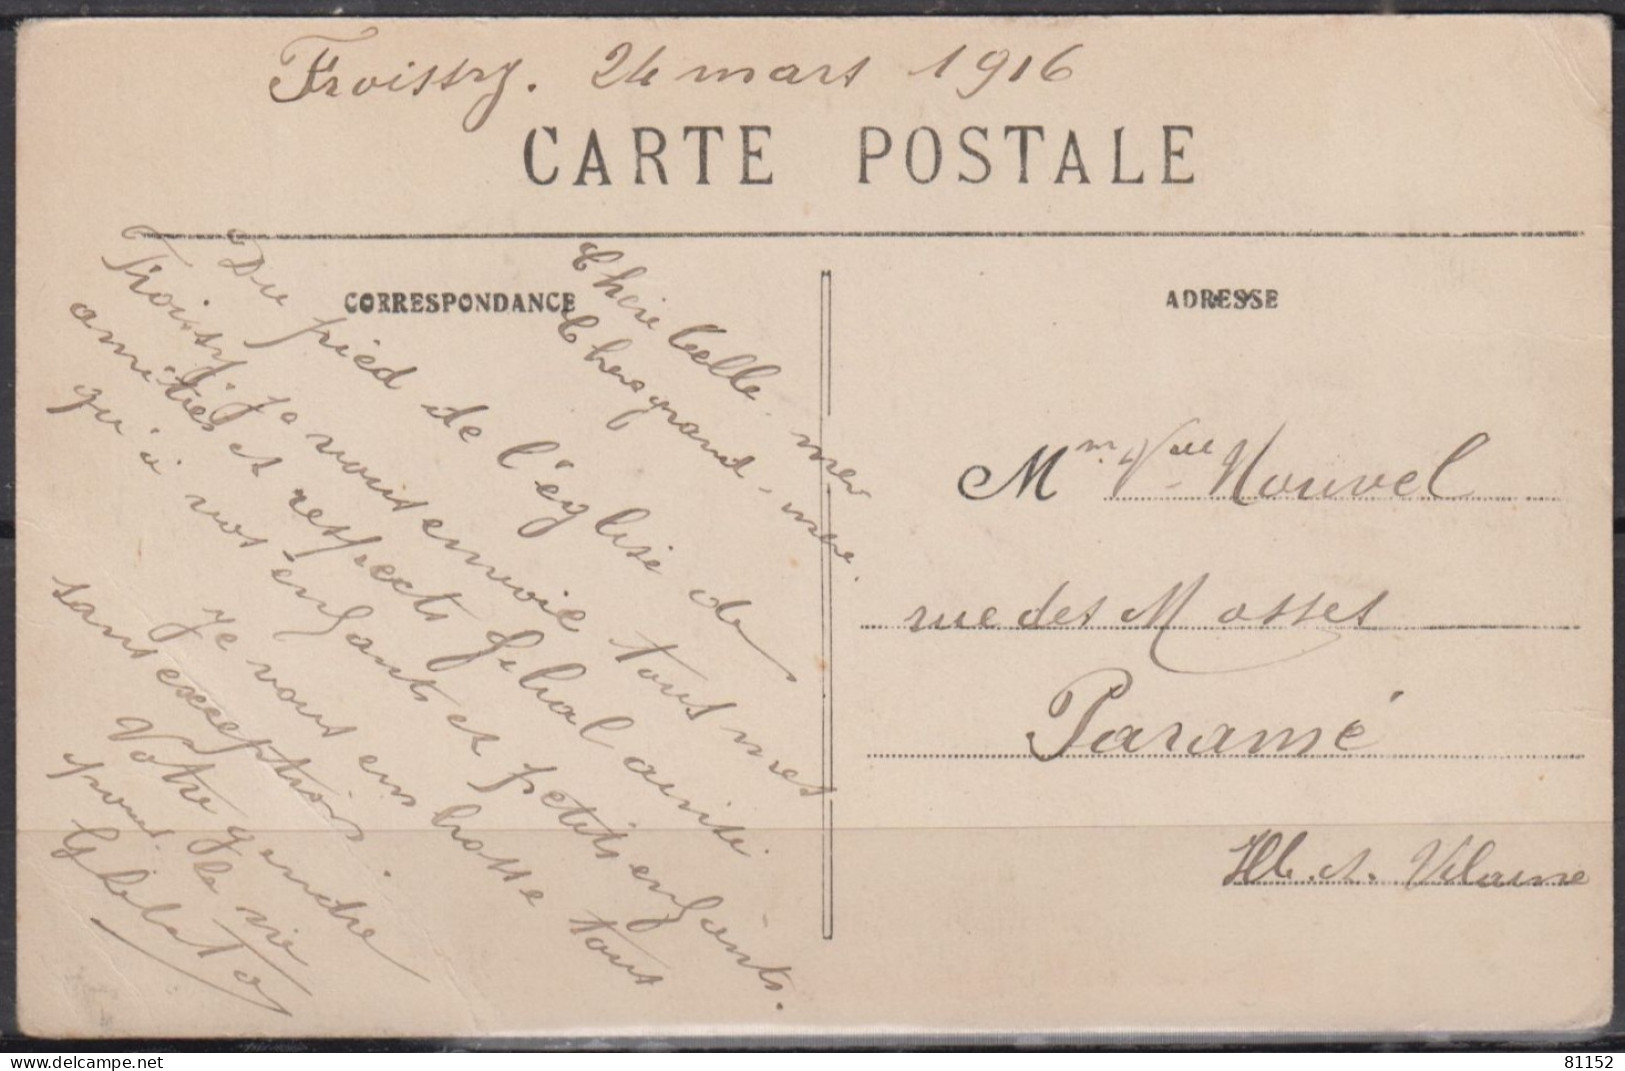 Froissy. 24 mars 1916
CARTE POSTALE
CORRESPONDANCE
Chère belle-mère
Chère grand-mère.
Du pied de l'église de
Froissy je vous envoie tous mes
amitiés et respects filial ainsi
qu'à vos enfants et petits enfants.
Je vous embrasse tous
sans exception
Votre gendre
pour la vie
ADRESSE
Mme Vve Nouvel
rue des Masses
Paramé
Ille. et. Vilaine
81152